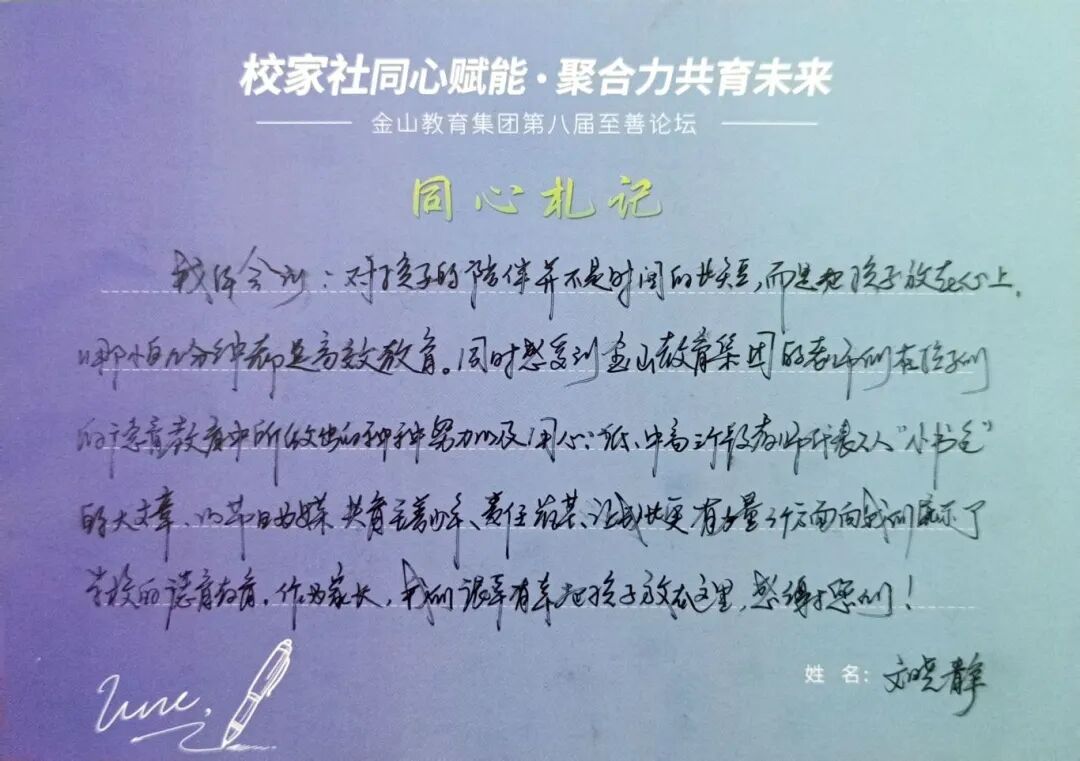 校家社同心赋能·聚合力共育未来
金山教育集团第八届至善论坛
同心札记
我体会到：对孩子的陪伴并不是时间的长短，而是把孩子放在心上，
哪怕几分钟都是高效教育。同时感受到金山教育集团的老师们在孩子们
的德育教育中所做出的种种努力以及用心：低、中高三个段教师代表从“小书包”
的大文章、以节日为媒 共育至善少年、责任 让成长更有力量三个方面向我们展示了
学校的德育教育。作为家长，我们很幸有幸把孩子放在这里，感谢您们！
姓 名：文晓静